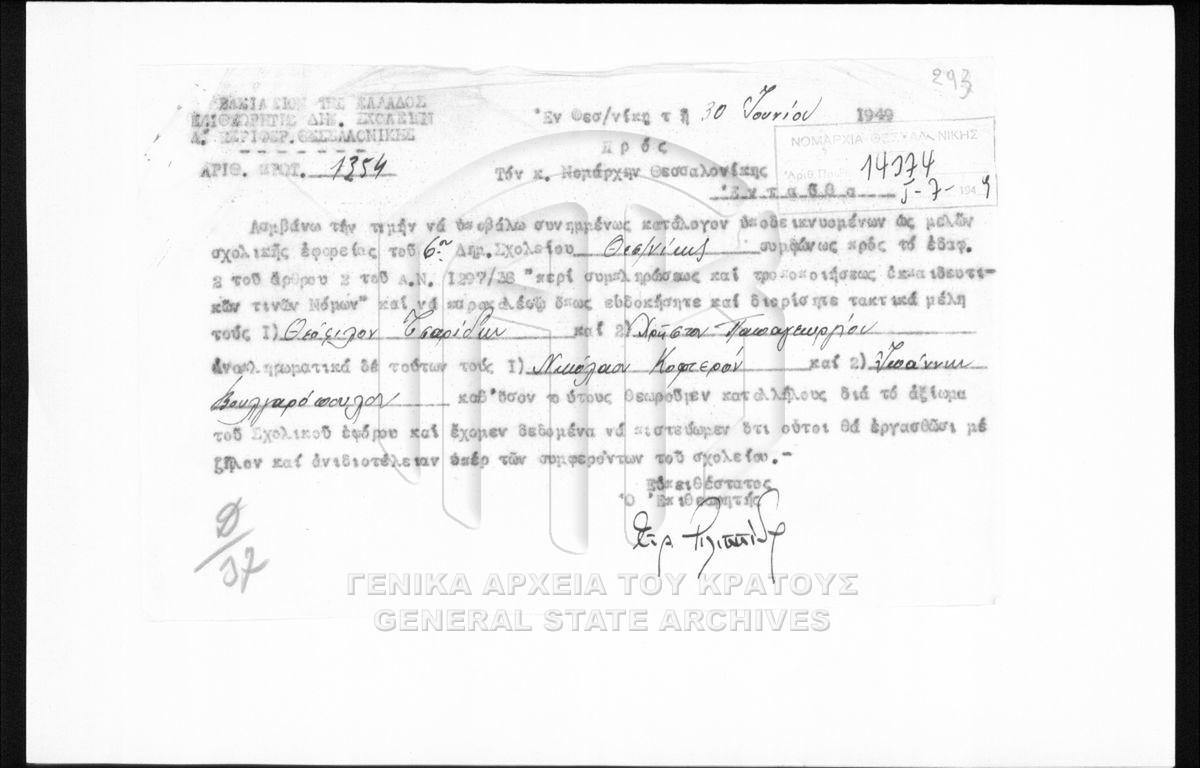 293
ΒΑΣΙΛΕΙΟΝ ΤΗΣ ΕΛΛΑΔΟΣ
ΕΠΙΘΕΩΡΗΤΗΣ ΔΗΜ. ΣΧΟΛΕΙΩΝ
Α. ΠΕΡΙΦΕΡ. ΘΕΣΣΑΛΟΝΙΚΗΣ
ΑΡΙΘ. ΠΡΩΤ. 1354
Ἐν Θεσ/νίκῃ τῇ 30 Ἰουνίου 1949
Πρός
Τόν κ. Νομάρχην Θεσσαλονίκης
Ἐνταῦθα
ΝΟΜΑΡΧΙΑ ΘΕΣΣΑΛΟΝΙΚΗΣ
Ἀριθ. Πρωτ. 14374
5-7-1949
Λαμβάνω τήν τιμήν νά ὑποβάλω συνημμένως κατάλογον ὑποδεικνυομένων ὡς μελῶν
σχολικῆς ἐφορείας τοῦ 6ου Δημ. Σχολείου Θεσ/νίκης συμφώνως πρός τό ἐδαφ.
2 τοῦ ἄρθρου 2 τοῦ Α.Ν. 1297/38 "περί συμπληρώσεως καί τροποποιήσεως ἐκπαιδευτι-
κῶν τινῶν Νόμων" καί νά παρακαλέσω ὅπως εὐδοκήσητε καί διορίσητε τακτικά μέλη
τούς 1) Θεόφιλον Τσαρίδην καί 2) Χρῆστον Παπαγεωργίου
ἀναπληρωματικά δέ τούτων τούς 1) Νικόλαον Κοφτερόν καί 2) Ἰωάννην
Βουλγαρόπουλον καθ' ὅσον τούτους θεωροῦμεν καταλλήλους διά τό ἀξίωμα
τοῦ Σχολικοῦ ἐφόρου καί ἔχομεν δεδομένα νά πιστεύωμεν ὅτι οὗτοι θά ἐργασθῶσι μέ
ζῆλον καί ἀνιδιοτέλειαν ὑπέρ τῶν συμφερόντων τοῦ σχολείου.-
Εὐπειθέστατος
Ὁ Ἐπιθεωρητής
Φ/37
ΓΕΝΙΚΑ ΑΡΧΕΙΑ ΤΟΥ ΚΡΑΤΟΥΣ
GENERAL STATE ARCHIVES